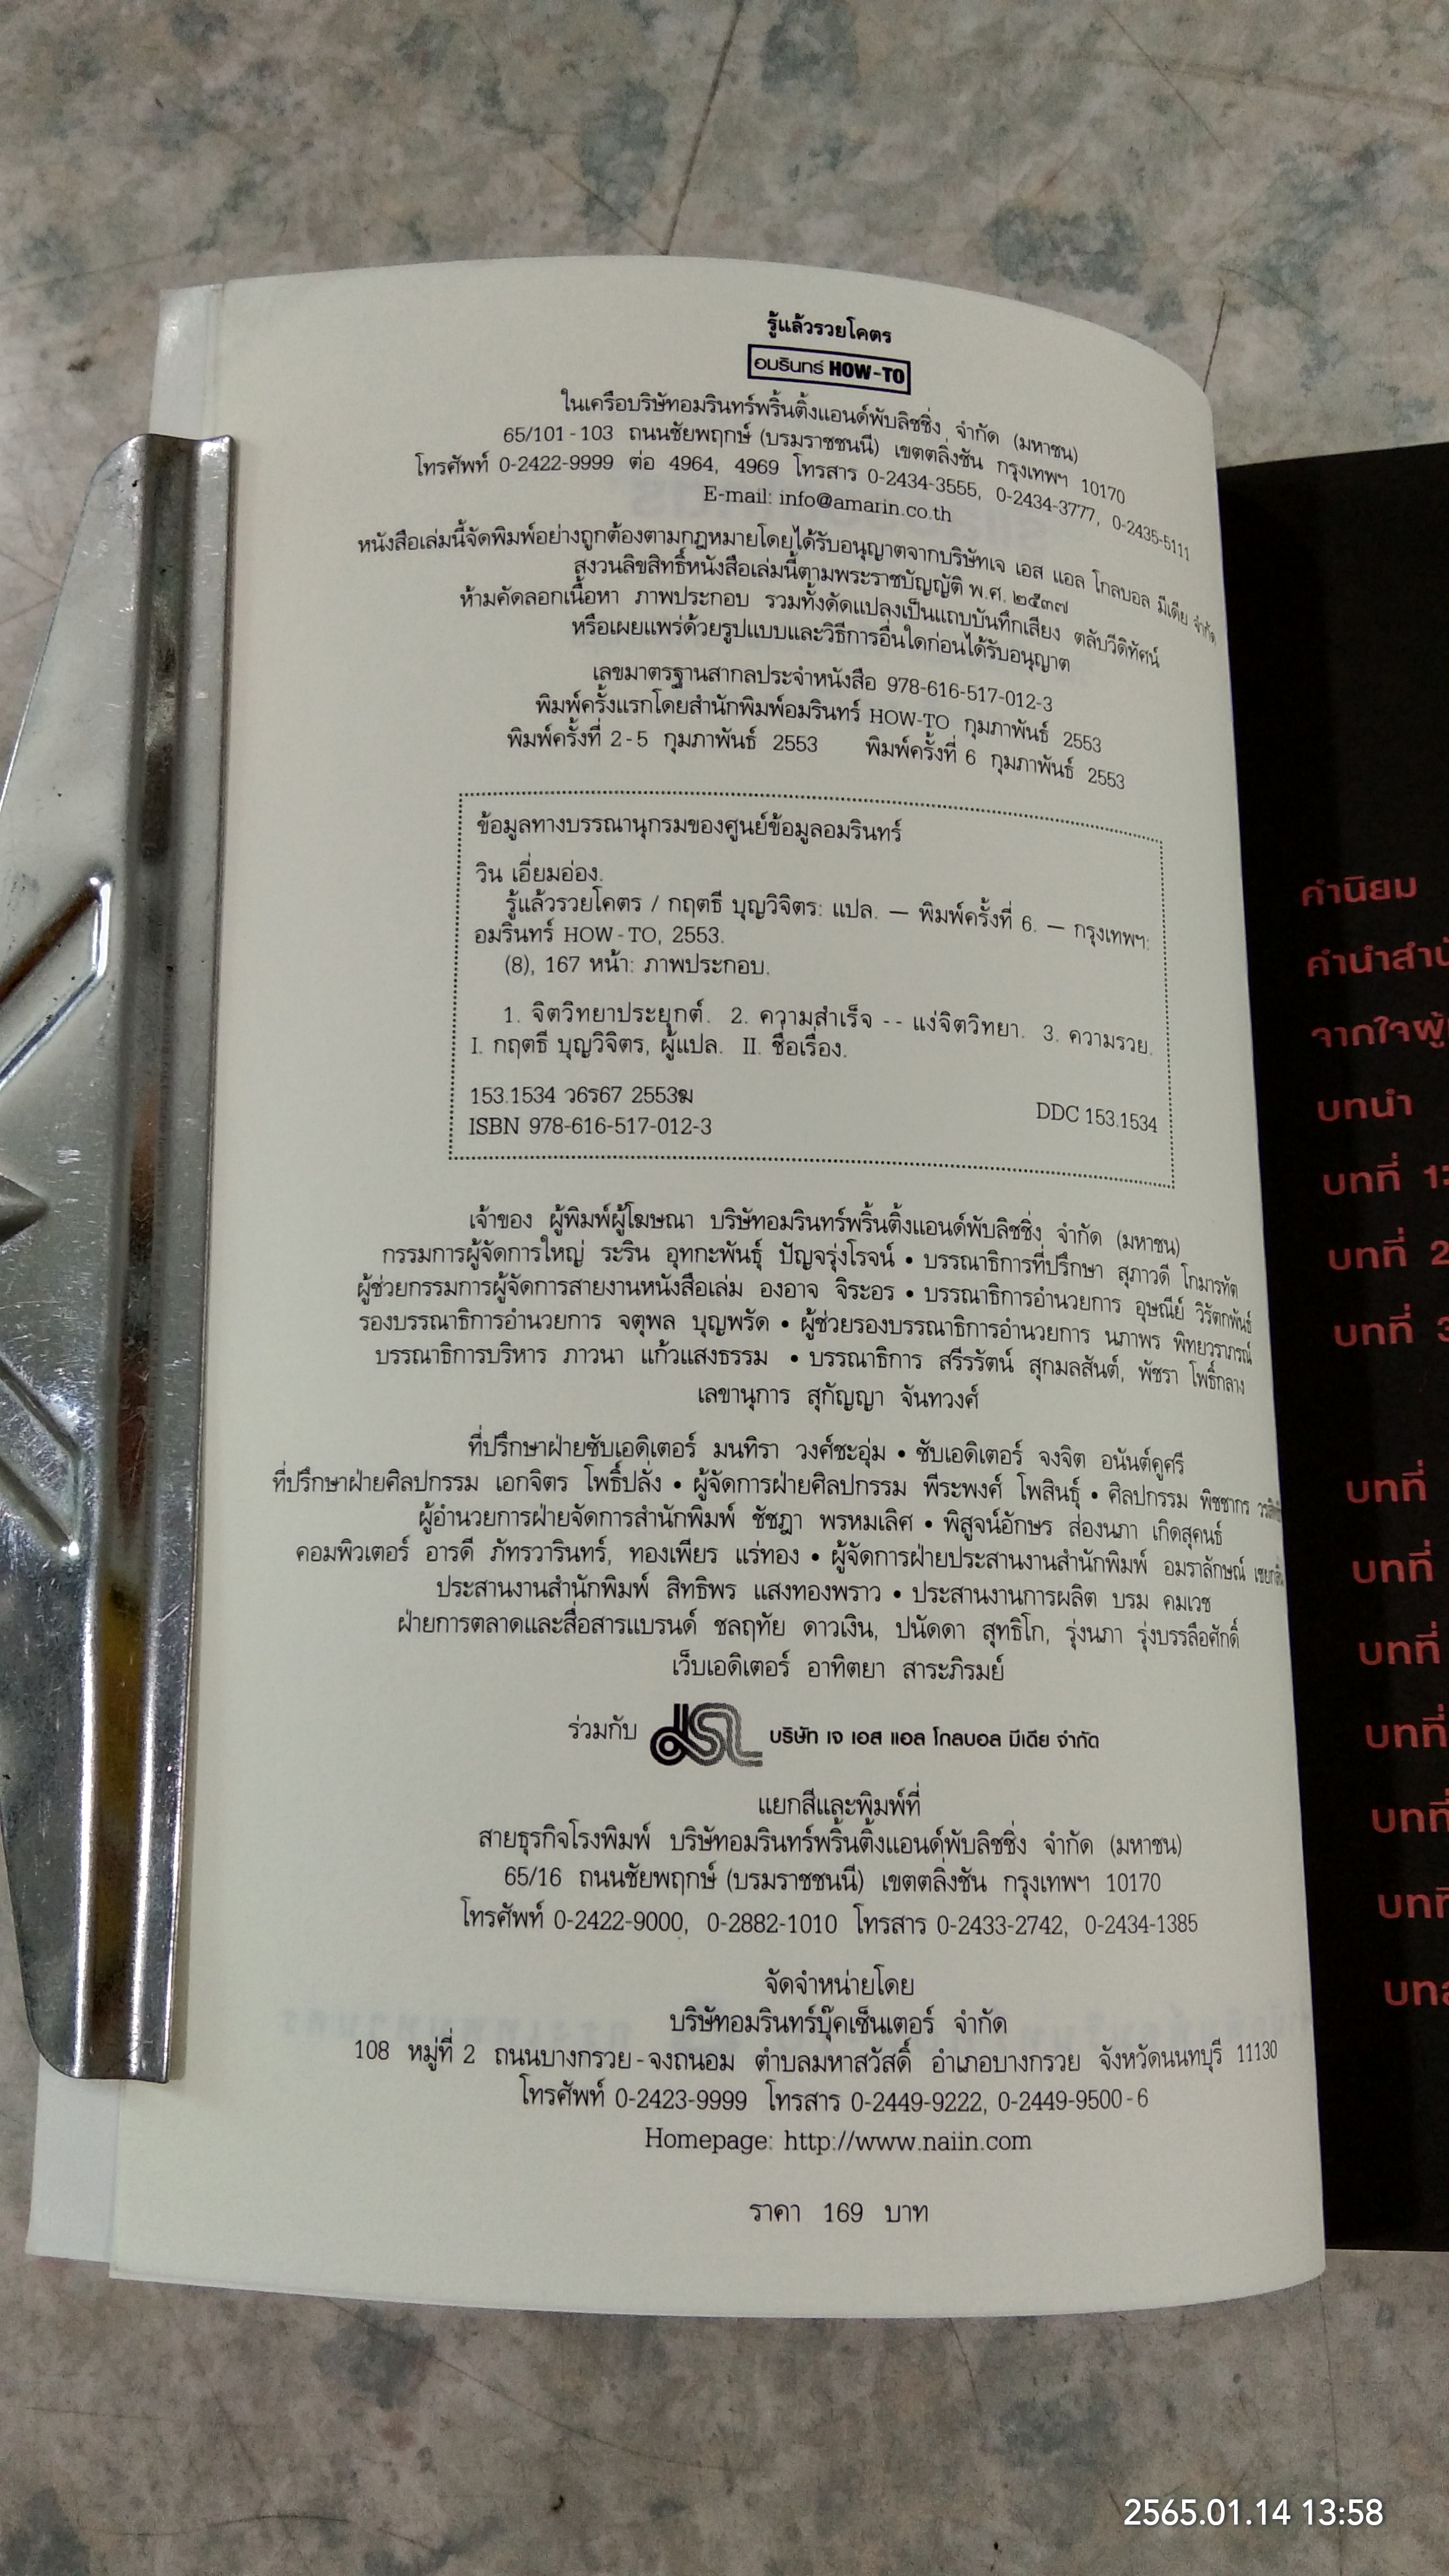 รู้แล้วรวยโคตร
อมรินทร์ HOW-TO
ในเครือบริษัทอมรินทร์พริ้นติ้งแอนด์พับลิชชิ่ง จำกัด (มหาชน)
65/101-103 ถนนชัยพฤกษ์ (บรมราชชนนี) เขตตลิ่งชัน กรุงเทพฯ 10170
โทรศัพท์ 0-2422-9999 ต่อ 4964, 4969 โทรสาร 0-2434-3555, 0-2434-3777, 0-2435-5111
E-mail: info@amarin.co.th
หนังสือเล่มนี้จัดพิมพ์อย่างถูกต้องตามกฎหมายโดยได้รับอนุญาตจากบริษัทเจ เอส แอล โกลบอล มีเดีย จำกัด
สงวนลิขสิทธิ์หนังสือเล่มนี้ตามพระราชบัญญัติ พ.ศ. ๒๕๓๗
ห้ามคัดลอกเนื้อหา ภาพประกอบ รวมทั้งดัดแปลงเป็นแถบบันทึกเสียง ตลับวีดิทัศน์
หรือเผยแพร่ด้วยรูปแบบและวิธีการอื่นใดก่อนได้รับอนุญาต
เลขมาตรฐานสากลประจำหนังสือ 978-616-517-012-3
พิมพ์ครั้งแรกโดยสำนักพิมพ์อมรินทร์ HOW-TO กุมภาพันธ์ 2553
พิมพ์ครั้งที่ 2-5 กุมภาพันธ์ 2553 พิมพ์ครั้งที่ 6 กุมภาพันธ์ 2553
ข้อมูลทางบรรณานุกรมของศูนย์ข้อมูลอมรินทร์
วิน เอี่ยมอ่อง.
รู้แล้วรวยโคตร / กฤตธี บุญวิจิตร: แปล. — พิมพ์ครั้งที่ 6. — กรุงเทพฯ:
อมรินทร์ HOW-TO, 2553.
(8), 167 หน้า: ภาพประกอบ.
1. จิตวิทยาประยุกต์. 2. ความสำเร็จ -- แง่จิตวิทยา. 3. ความรวย.
I. กฤตธี บุญวิจิตร, ผู้แปล. II. ชื่อเรื่อง.
153.1534 ว6ร67 2553ฆ
ISBN 978-616-517-012-3 DDC 153.1534
เจ้าของ ผู้พิมพ์ผู้โฆษณา บริษัทอมรินทร์พริ้นติ้งแอนด์พับลิชชิ่ง จำกัด (มหาชน)
กรรมการผู้จัดการใหญ่ ระริน อุทกะพันธุ์ ปัญจรุ่งโรจน์ • บรรณาธิการที่ปรึกษา สุภาวดี โกมารทัต
ผู้ช่วยกรรมการผู้จัดการสายงานหนังสือเล่ม องอาจ จิระอร • บรรณาธิการอำนวยการ อุษณีย์ วิรัตกพันธ์
รองบรรณาธิการอำนวยการ จตุพล บุญพรัด • ผู้ช่วยรองบรรณาธิการอำนวยการ นภาพร พิทยวราภรณ์
บรรณาธิการบริหาร ภาวนา แก้วแสงธรรม • บรรณาธิการ สรีรรัตน์ สุกมลสันต์, พัชรา โพธิ์กลาง
เลขานุการ สุกัญญา จันทวงศ์
ที่ปรึกษาฝ่ายซับเอดิเตอร์ มนทิรา วงศ์ชะอุ่ม • ซับเอดิเตอร์ จงจิต อนันต์คูศรี
ที่ปรึกษาฝ่ายศิลปกรรม เอกจิตร โพธิ์ปลั่ง • ผู้จัดการฝ่ายศิลปกรรม พีระพงศ์ โพสินธุ์ • ศิลปกรรม พิชชากร
ผู้อำนวยการฝ่ายจัดการสำนักพิมพ์ ชัชฎา พรหมเลิศ • พิสูจน์อักษร ส่องนภา เกิดสุคนธ์
คอมพิวเตอร์ อารดี ภัทรวารินทร์, ทองเพียร แร่ทอง • ผู้จัดการฝ่ายประสานงานสำนักพิมพ์ อมราลักษณ์
ประสานงานสำนักพิมพ์ สิทธิพร แสงทองพราว • ประสานงานการผลิต บรม คมเวช
ฝ่ายการตลาดและสื่อสารแบรนด์ ชลฤทัย ดาวเงิน, ปนัดดา สุทธิโก, รุ่งนภา รุ่งบรรลือศักดิ์
เว็บเอดิเตอร์ อาทิตยา สาระภิรมย์
ร่วมกับ JSL บริษัท เจ เอส แอล โกลบอล มีเดีย จำกัด
แยกสีและพิมพ์ที่
สายธุรกิจโรงพิมพ์ บริษัทอมรินทร์พริ้นติ้งแอนด์พับลิชชิ่ง จำกัด (มหาชน)
65/16 ถนนชัยพฤกษ์ (บรมราชชนนี) เขตตลิ่งชัน กรุงเทพฯ 10170
โทรศัพท์ 0-2422-9000, 0-2882-1010 โทรสาร 0-2433-2742, 0-2434-1385
จัดจำหน่ายโดย
บริษัทอมรินทร์บุ๊คเซ็นเตอร์ จำกัด
108 หมู่ที่ 2 ถนนบางกรวย-จงถนอม ตำบลมหาสวัสดิ์ อำเภอบางกรวย จังหวัดนนทบุรี 11130
โทรศัพท์ 0-2423-9999 โทรสาร 0-2449-9222, 0-2449-9500-6
Homepage: http://www.naiin.com
ราคา 169 บาท
คำนิยม
บทนำ
บทที่ 1:
บทที่ 2
บทที่ 3
บทที่
บทที่
บทที่
บทที่
บทที่
2565.01.14 13:58